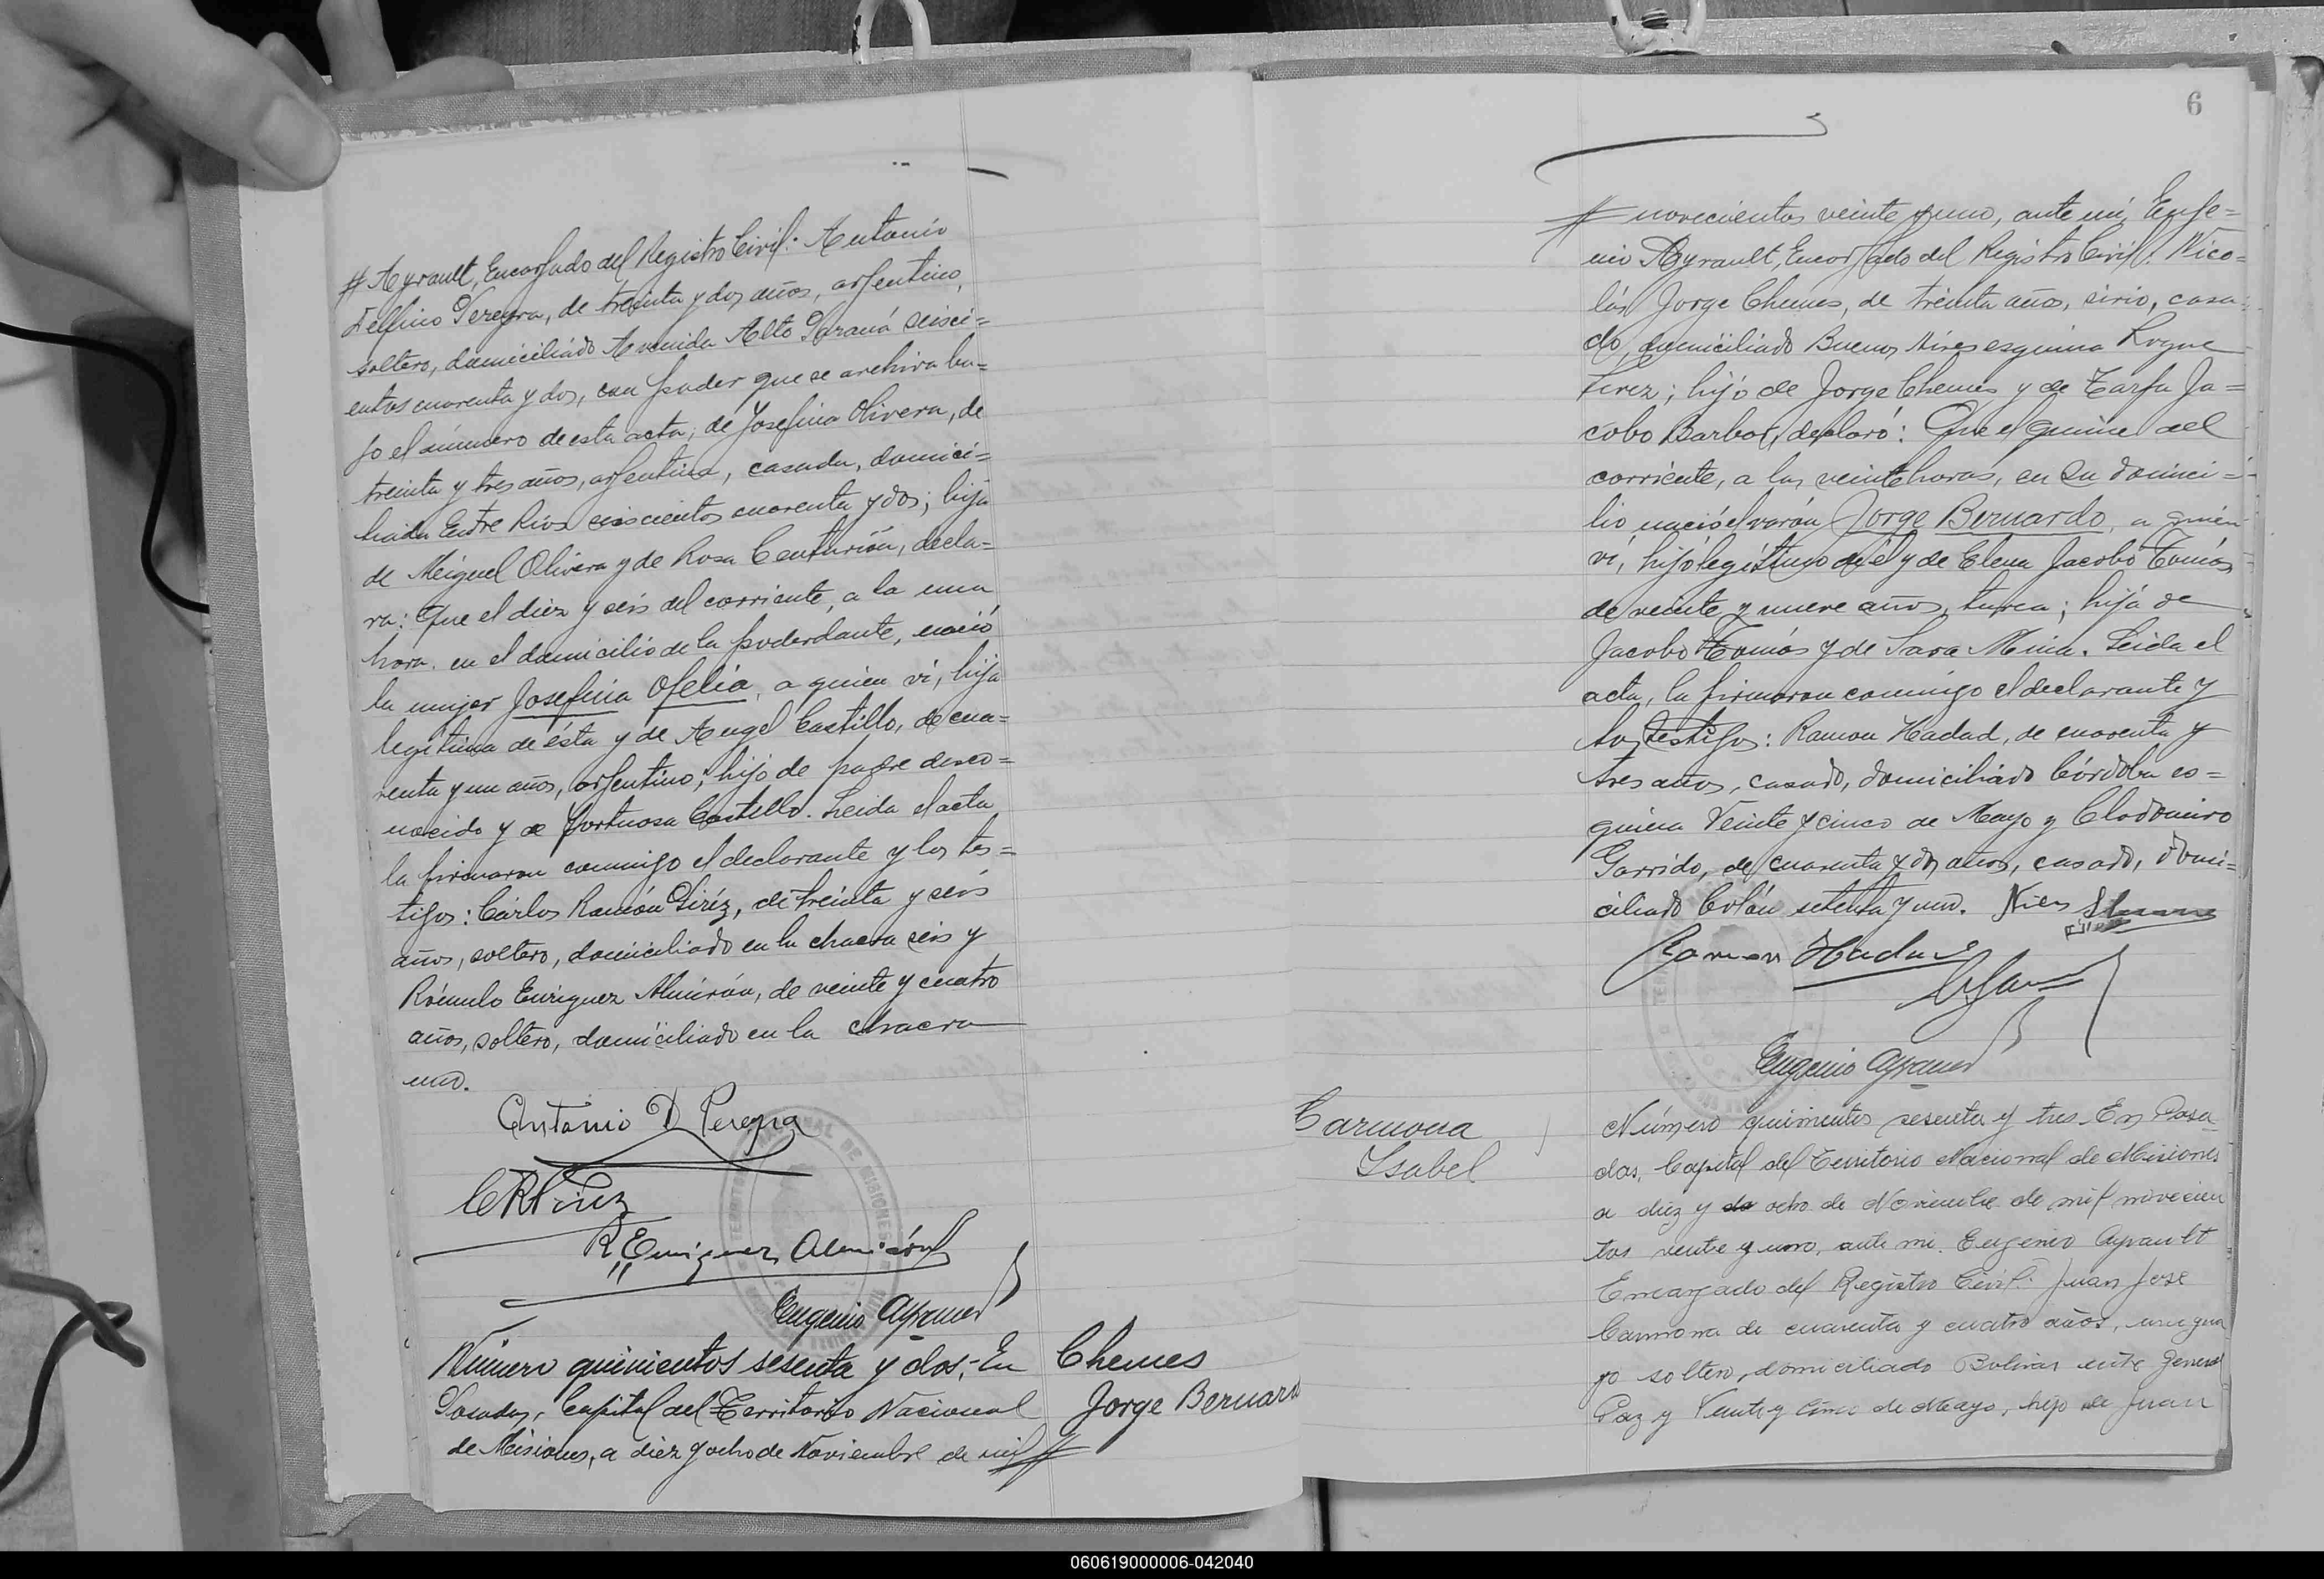 # Ayrault, Encargado del Registro Civil: Antonio
Delfino Pereyra, de treinta y dos años, argentino,
soltero, domiciliado Avenida Alto Paraná seisci=
entos cuarenta y dos, con poder que se archiva ba=
jo el número de esta acta; de Josefina Olivera, de
treinta y tres años, argentina, casada, domici=
liada Entre Rios seiscientos cuarenta y dos; hija
de Miguel Olivera y de Rosa Centurión, decla=
ra: Que el diez y seis del corriente, a la una
hora, en el domicilio de la poderdante, nació
la mujer Josefina Ofelia, a quien vi, hija
legítima de ésta y de Angel Castillo, de cua=
renta y un años, argentino; hijo de padre desco=
nocido y de Fortuosa Castillo. Leida el acta
la firmaron conmigo el declarante y los tes=
tigos: Cárlos Ramón Píriz, de treinta y seis
años, soltero, domiciliado en la chacra seis y
Rómulo Enriquez Almirón, de veinte y cuatro
años, soltero, domiciliado en la chacra
uno.
Antonio D Pereyra
CRPiriz
R Enriquez Almirón
Eugenio Ayrault
Número quinientos sesenta y dos.- En
Posadas, Capital del Territorio Nacional
de Misiones, a diez y ocho de Noviembre de mil #
Chemes
Jorge Bernard
6
# novecientos veinte y uno, ante mí, Euge=
nio Ayrault, Encargado del Registro Civil: Nico=
lás Jorge Chemes, de treinta años, sirio, casa=
do, domiciliado Buenos Aires esquina Roque
Perez; hijo de Jorge Chemes y de Tarfa Ja=
cobo Barbot, declaró: Que el quince del
corriente, a las veinte horas, en su domici=
lio nació el varón Jorge Bernardo, a quien
vi, hijo legítimo de él y de Elena Jacobo Tomás
de veinte y nueve años, turca; hija de
Jacobo Tomás y de Sara Mina. Leida el
acta, la firmaron conmigo el declarante y
los testigos: Ramon Hadad, de cuarenta y
tres años, casado, domiciliado Córdoba es=
quina Veinte y cinco de Mayo y Clodomiro
Garrido, de cuarenta y dos años, casado, domi=
ciliado Colón setenta y uno. Nicolas
Ramon Hadad
Eugenio Ayrault
Carmona
Ysabel
Número quinientos sesenta y tres. En Posa
das, Capital del Territorio Nacional de Misiones
a diez y do ocho de Noviembre de mil novecien
tos veinte y uno, ante mi, Eugenio Ayrault
Encargado del Registro Civil: Juan José
Carmona de cuarenta y cuatro años, urugua
yo soltero, domiciliado Bolivar entre General
Paz y Veinte y cinco de Mayo, hijo de Juan
060619000006-042040